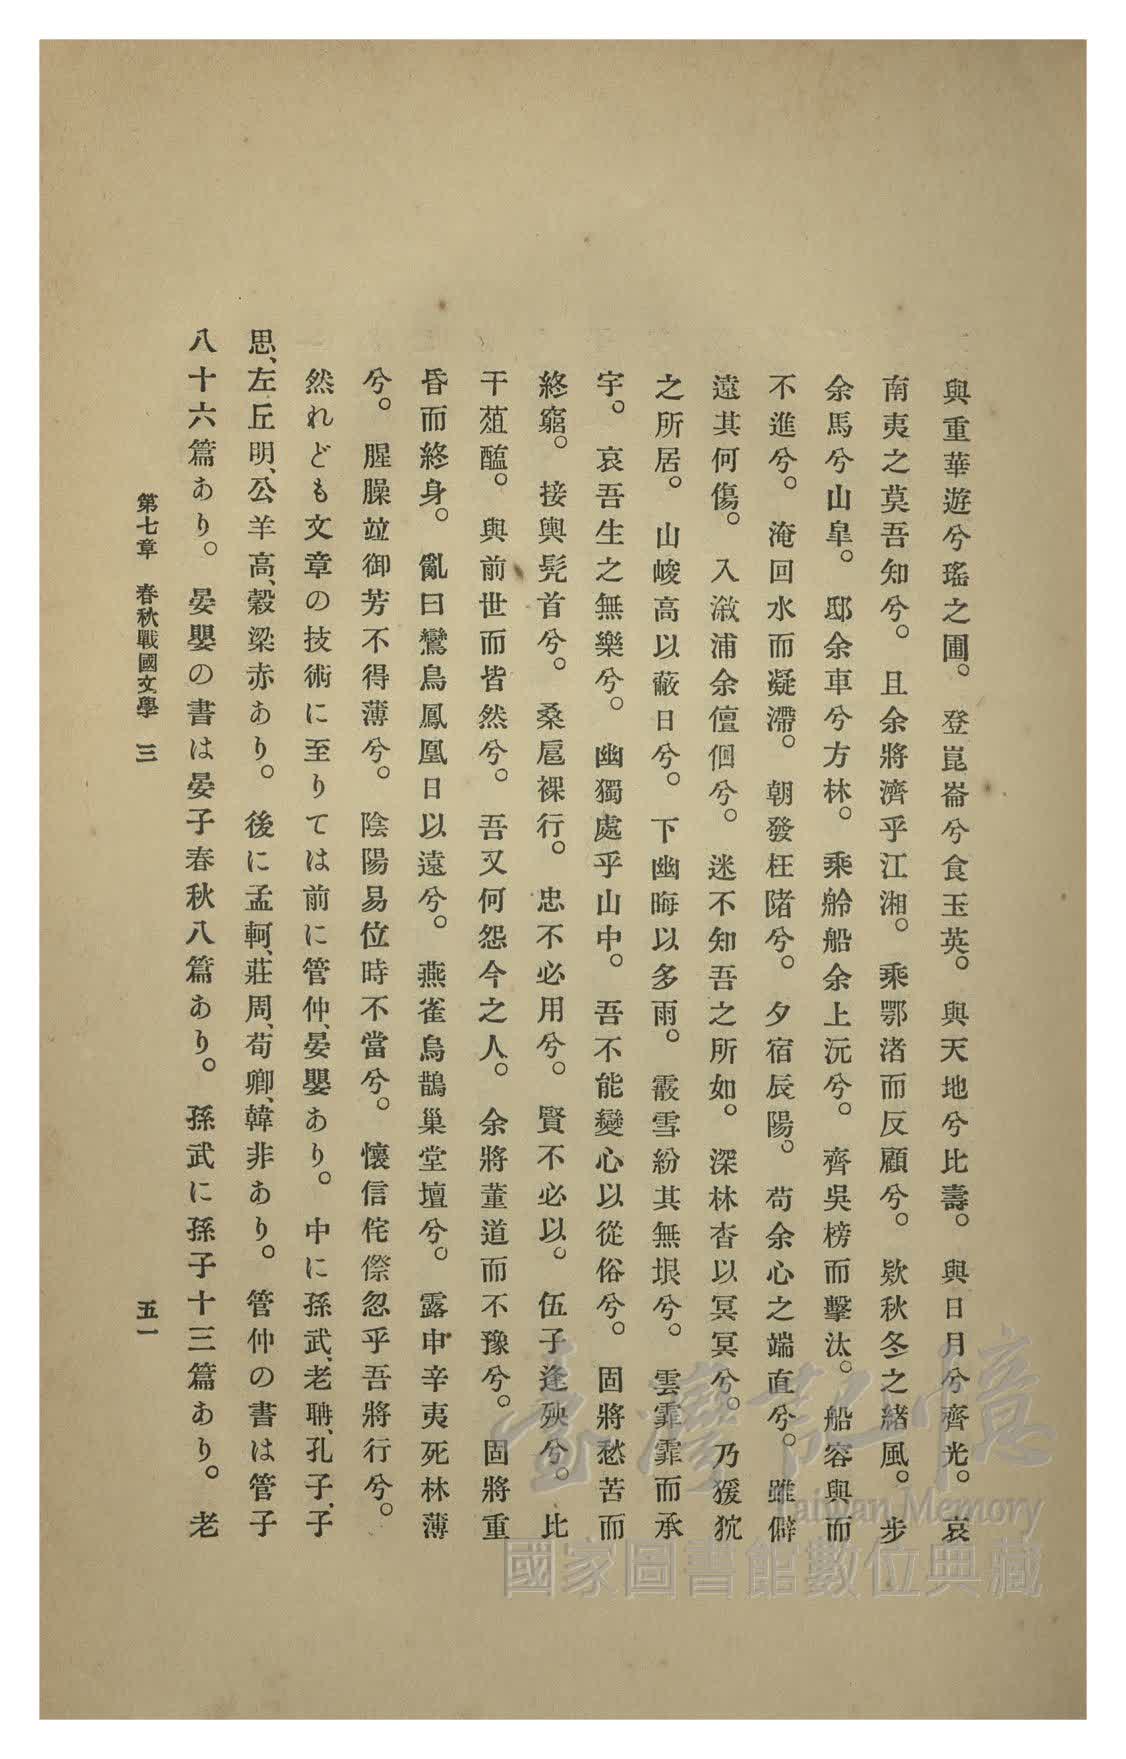 與重華遊兮瑤之圃。登崑崙兮食玉英。與天地兮比壽。與日月兮齊光。哀
南夷之莫吾知兮。且余將濟乎江湘。乘鄂渚而反顧兮。欸秋冬之緒風。步
余馬兮山皐。邸余車兮方林。乘舲船余上沅兮。齊吳榜而擊汰。船容與而
不進兮。淹回水而凝滯。朝發枉陼兮。夕宿辰陽。苟余心之端直兮。雖僻
遠其何傷。入漵浦余儃佪兮。迷不知吾之所如。深林杳以冥冥兮。乃猨狖
之所居。山峻高以蔽日兮。下幽晦以多雨。霰雪紛其無垠兮。雲霏霏而承
宇。哀吾生之無樂兮。幽獨處乎山中。吾不能變心以從俗兮。固將愁苦而
終窮。接輿髡首兮。桑扈裸行。忠不必用兮。賢不必以。伍子逢殃兮。比
干葅醢。與前世而皆然兮。吾又何怨今之人。余將董道而不豫兮。固將重
昏而終身。亂曰鸞鳥鳳凰日以遠兮。燕雀烏鵲巢堂壇兮。露申辛夷死林薄
兮。腥臊竝御芳不得薄兮。陰陽易位時不當兮。懷信侘傺忽乎吾將行兮。
然れども文章の技術に至りては前に管仲、晏嬰あり。中に孫武、老聃、孔子、子
思、左丘明、公羊高、穀梁赤あり。後に孟軻、莊周、荀卿、韓非あり。管仲の書は管子
八十六篇あり。晏嬰の書は晏子春秋八篇あり。孫武に孫子十三篇あり。老
第七章 春秋戰國文學 三
五一
臺灣記憶
Taiwan Memory
國家圖書館數位典藏